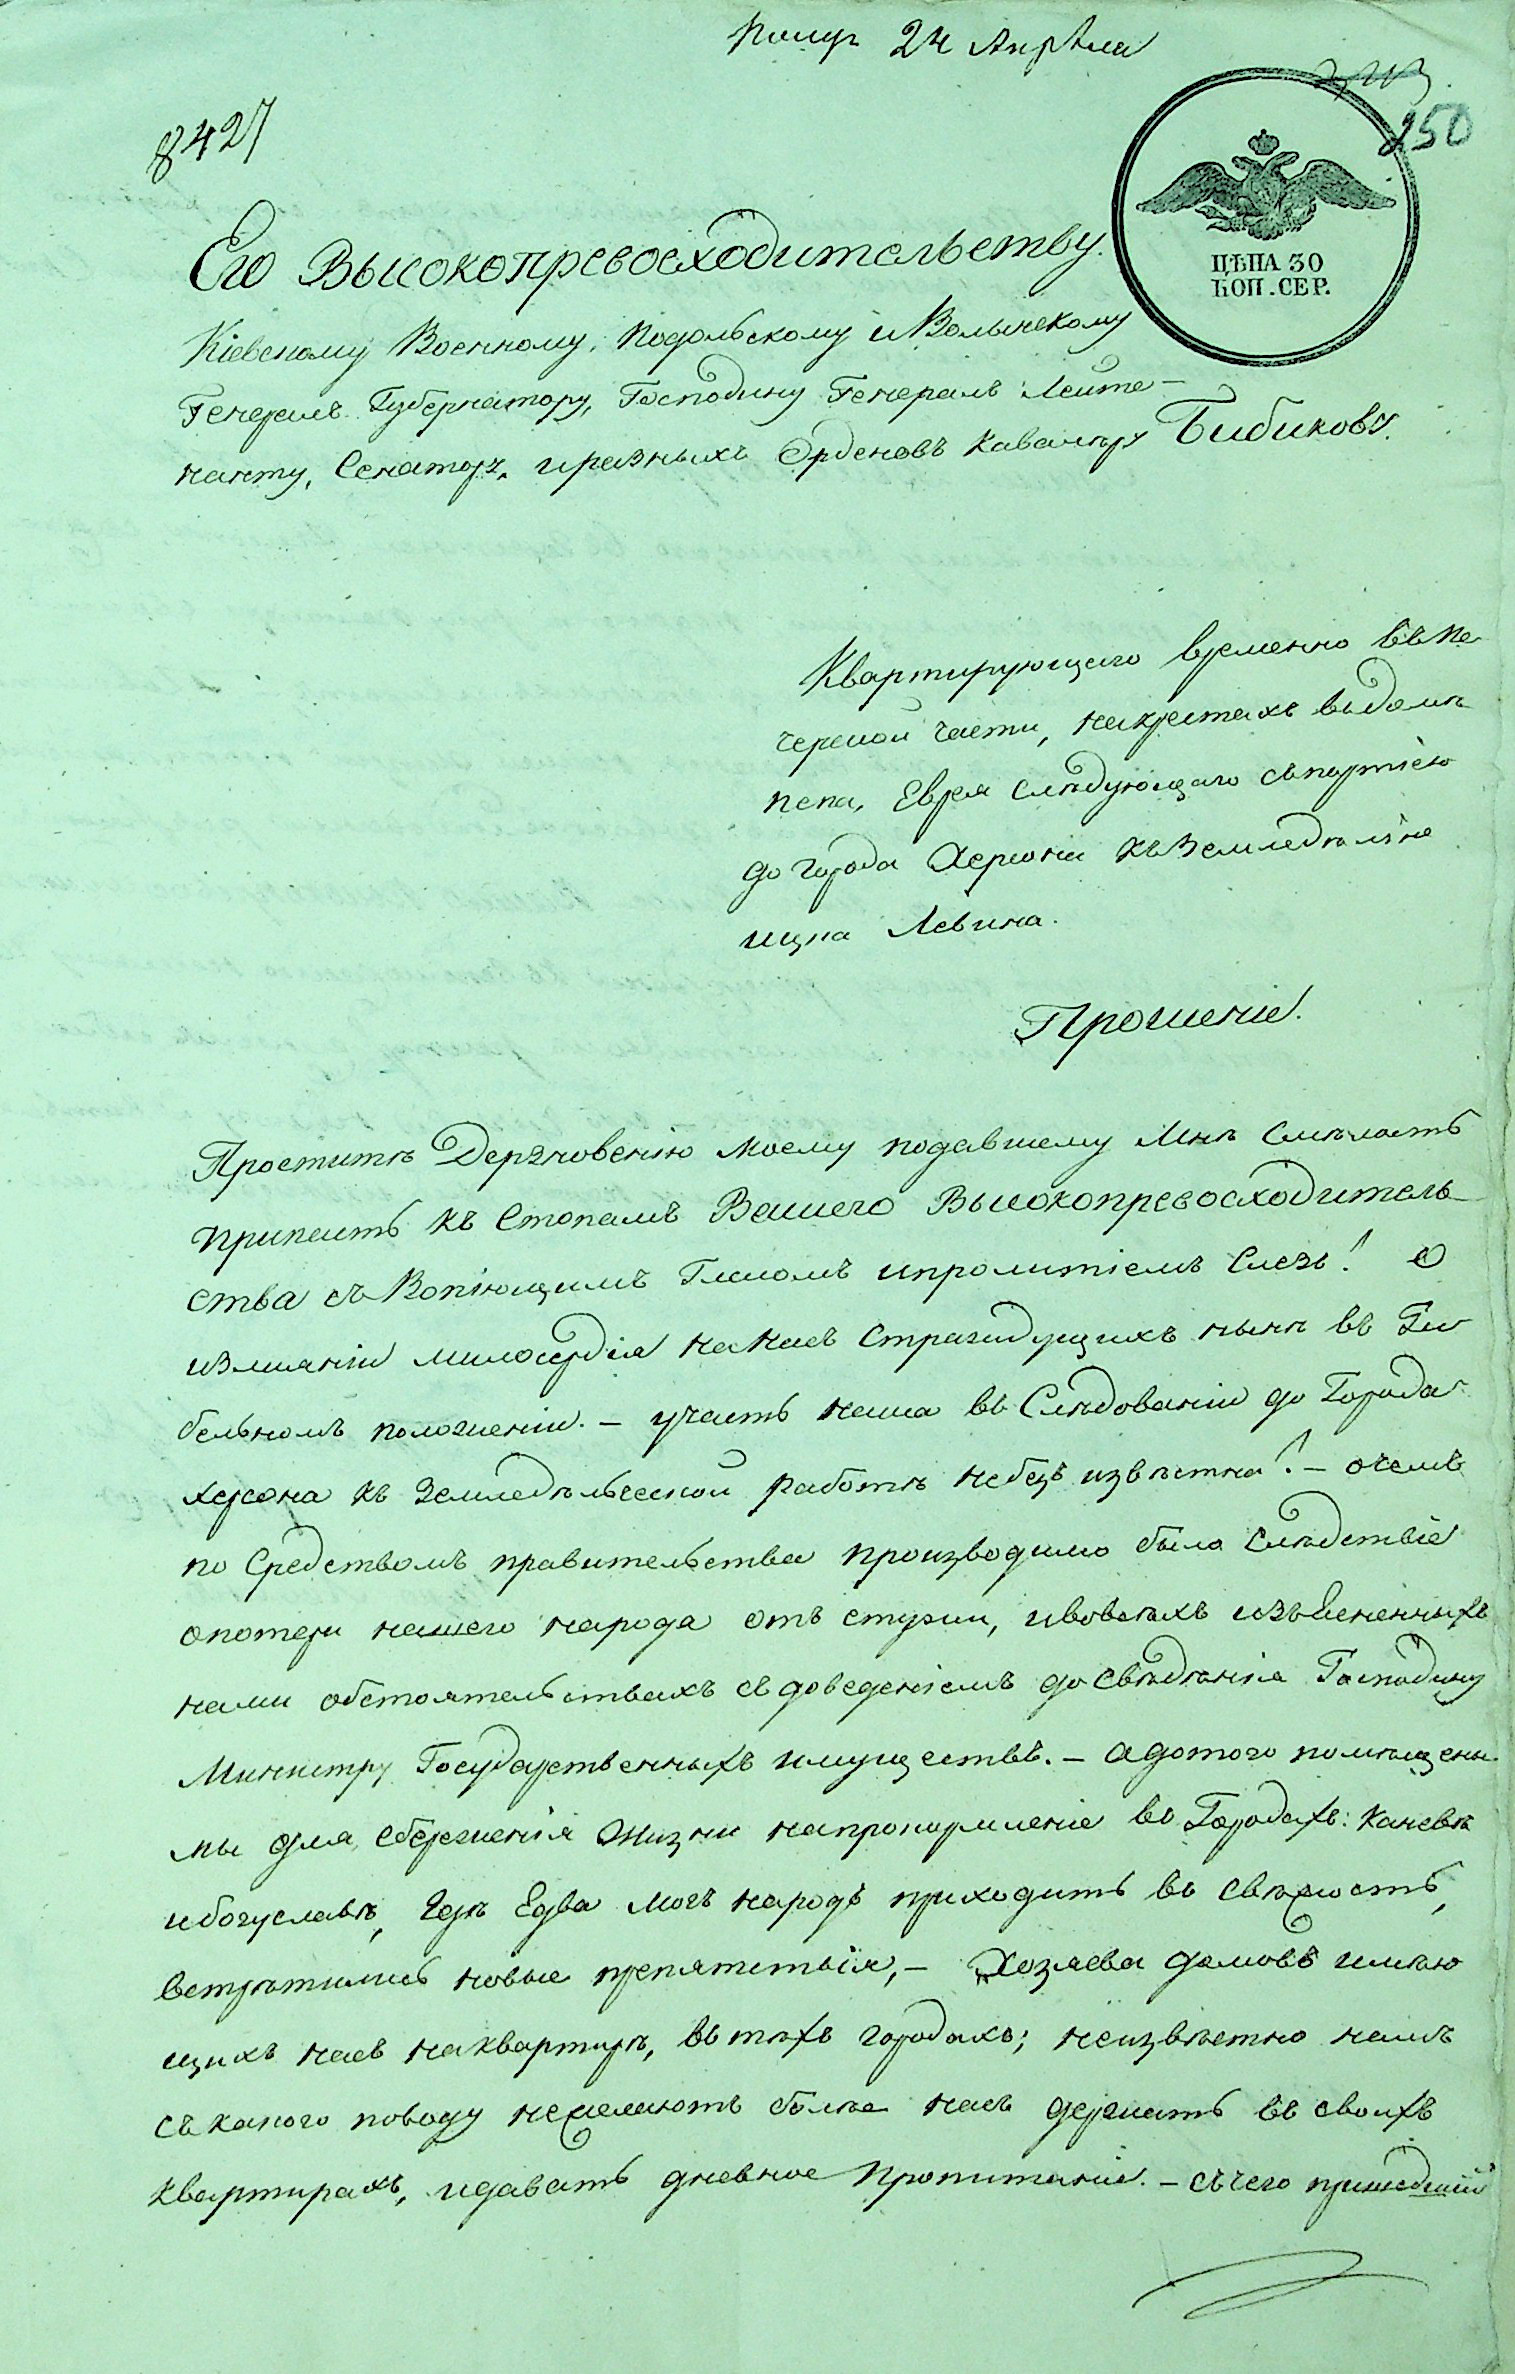 Получ 24 Апрѣля
250
8427
ЦѢНА 30
КОП. СЕР.
Его Высокопревосходительству.
Кіевскому Военному, Подольскому и Волынскому
Генералъ Губернатору, Господину Генералъ Лейте-
нанту, Сенатору, и разныхъ Орденовъ Кавалеру Бибикову.
Квартирующаго временно въ Пе
черской части, на крестахъ въ домѣ
Еврея Слѣдующаго съ партіею
до города Херсона къ Земледѣлію
Ицка Левина.
Прошеніе.
Простите Дерзновенію моему подавшему Мнѣ Смѣлость
припасть къ Стопамъ Вашего Высокопревосходитель-
ства съ Вопіющимъ Гласомъ и пролитіемъ Слезъ! О
изліяніи милосердія на насъ Страждущихъ нынѣ въ Ги
бельномъ положеніи. – участь наша въ Слѣдованіи до Города
Херсона къ Земледѣльческой работѣ небезъ извѣстна! – о чемъ
по Средствомъ правительства производимо было Слѣдствіе
о потери нашего народа отъ стужи, и во всѣхъ изъясненныхъ
нами обстоятельствахъ съ доведеніемъ до Свѣдѣнія Господину
Министру Государственныхъ имуществъ. – а до того помѣщены
мы для сбереженія Жизни на прокормленіе въ Городахъ: Каневѣ
и богуславѣ, Гдѣ Едва могъ народъ приходить въ свѣжость,
встрѣтились новые препятствія, – Хозяева домовъ имѣю
щихъ насъ на квартирѣ, въ тѣхъ городахъ; неизвѣстно намъ
съ какого поводу не желаютъ болѣе насъ держать въ своихъ
квартирахъ, и давать дневное пропитаніе. – съ чего пришедшій